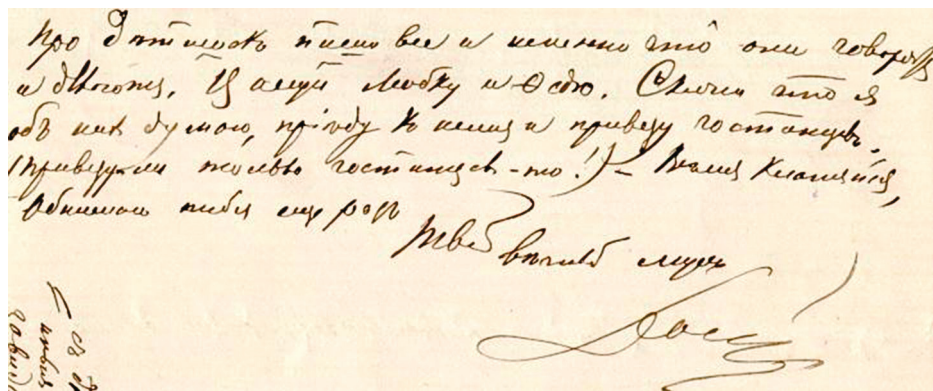 Про дѣтишекъ пиши все и именно что они говорятъ
и дѣлаютъ. Цалуй Любку и Ѳедю. Скажи что я
объ нихъ думаю, пріѣду къ нимъ и привезу гостинцевъ.
(привезу-ли только гостинцевъ-то!) – Всѣмъ кланяйся,
обнимаю тебя еще разъ
Твой вѣчный мужъ
Дост